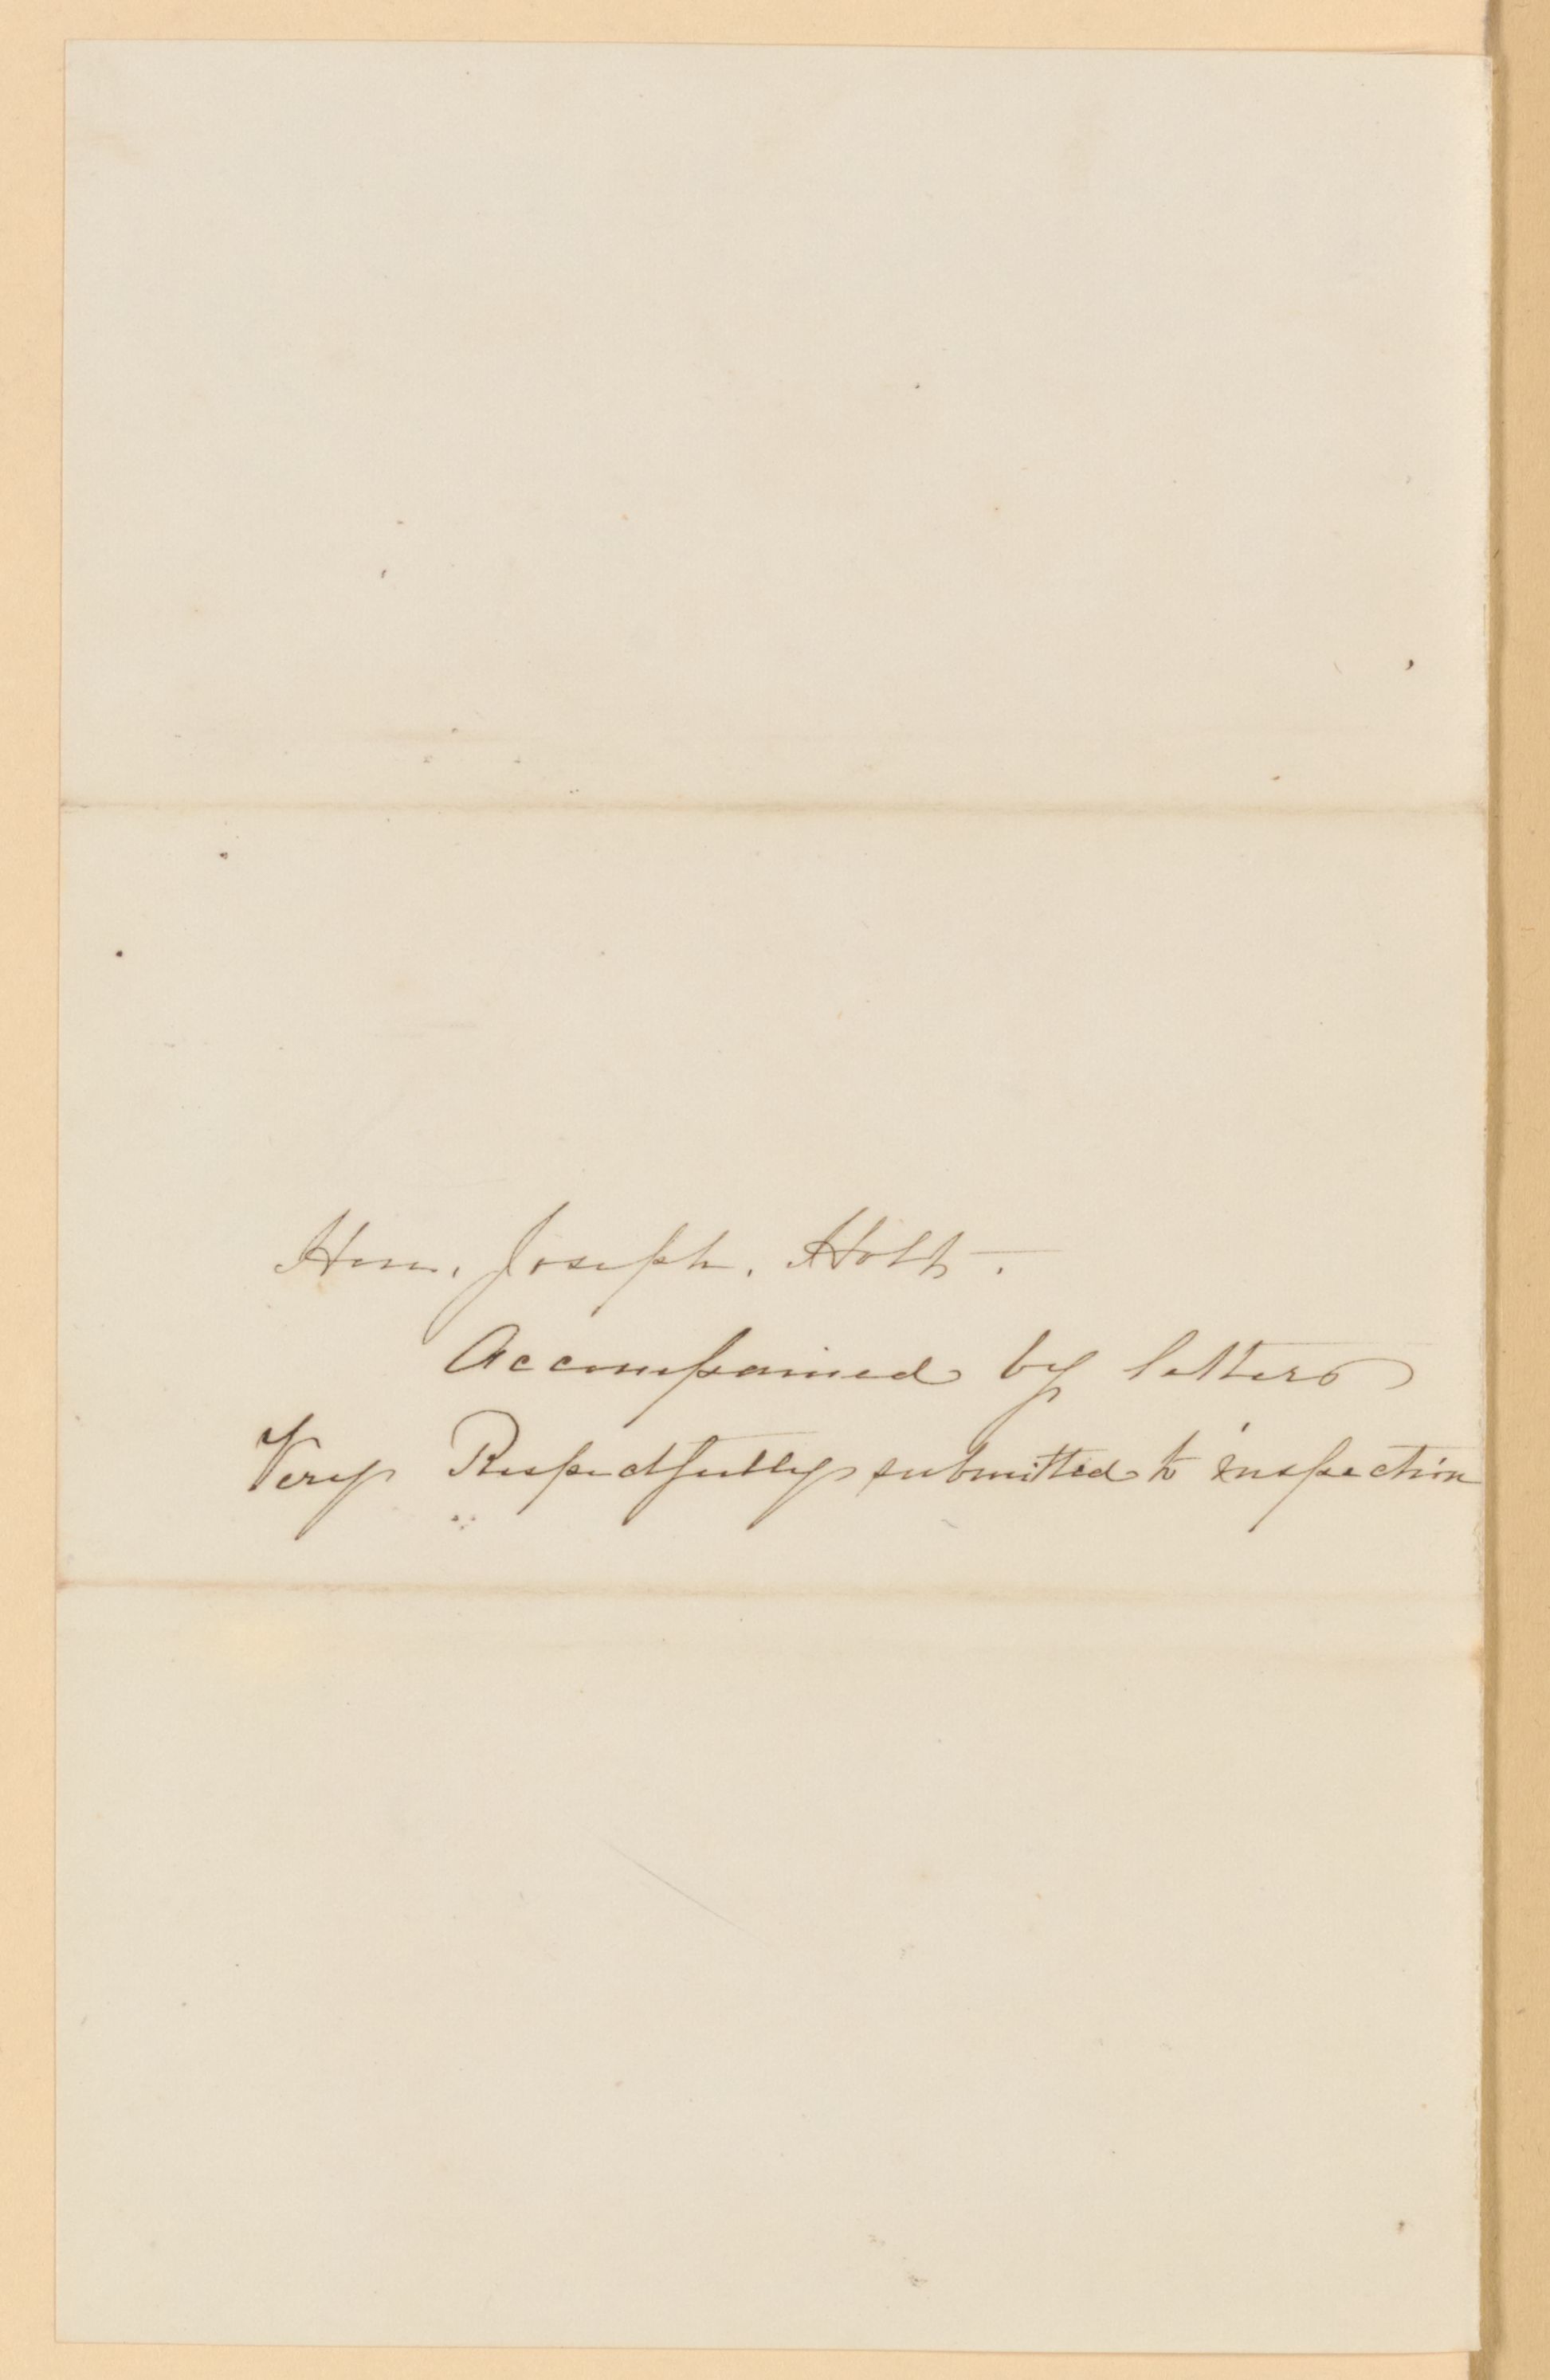 Hon. Joseph. Holt.
Accompained by letters
Very Respectfully submitted to inspection